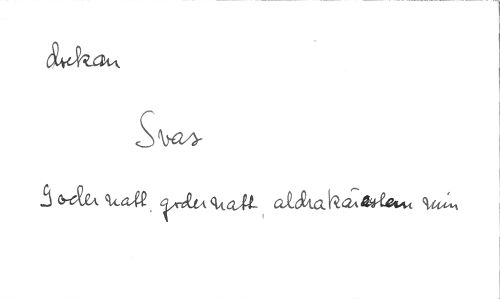 drekan
Svas
Goder natt, goder natt, aldrakärastem min